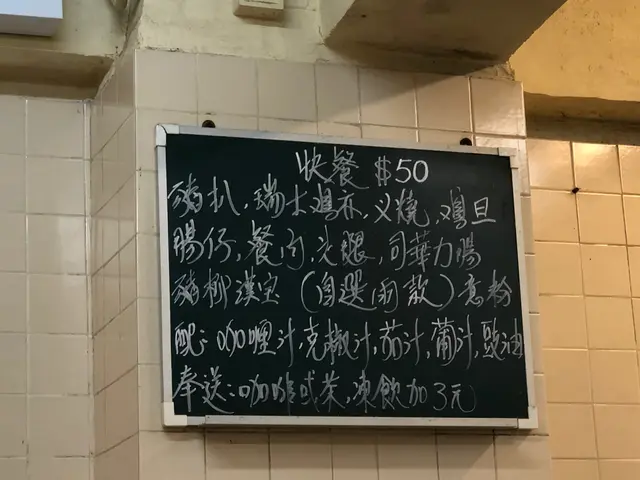 快餐 $50
豬扒,瑞士鷄亦,义燒,鷄旦
腸仔,餐肉,火腿,司華力腸
豬柳漢宝 (自選兩款)意粉
配:咖喱汁,克椒汁,茄汁,葡汁,豉油
奉送:咖啡或茶,凍飲加3元